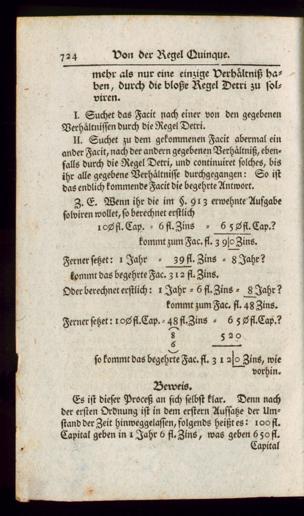 724 Von der Regel Quinque.
mehr als nur eine einzige Verhältniß ha-
ben, durch die bloße Regel Detri zu sol-
viren.
I. Suchet das Facit nach einer von den gegebenen
Verhältnissen durch die Regel Detri.
II. Suchet zu dem gekommenen Facit abermal ein
ander Facit, nach der andern gegebenen Verhältniß, eben-
falls durch die Regel Detri, und continuiret solches, bis
ihr alle gegebene Verhältnisse durchgegangen: So ist
das endlich kommende Facit die begehrte Antwort.
Z. E. Wenn ihr die im §. 913 erwehnte Aufgabe
solviren wollet, so berechnet erstlich
100 fl. Cap. - 6 fl. Zins - 650 fl. Cap.?
kommt zum Fac. fl. 39|0 Zins.
Ferner setzet: 1 Jahr - 39 fl. Zins - 8 Jahr?
kommt das begehrte Fac. 312 fl. Zins.
Oder berechnet erstlich: 1 Jahr - 6 fl. Zins - 8 Jahr?
kommt zum Fac. fl. 48 Zins.
Ferner setzet: 100 fl. Cap. - 48 fl. Zins - 650 fl. Cap.?
8 520
6
so kommt das begehrte Fac. fl. 312|0 Zins, wie
vorhin.
Beweis.
Es ist dieser Proceß an sich selbst klar. Denn nach
der ersten Ordnung ist in dem erstern Aufsatze der Um-
stand der Zeit hinweggelassen, folgends heißt es: 100 fl.
Capital geben in 1 Jahr 6 fl. Zins, was geben 650 fl.
Capital